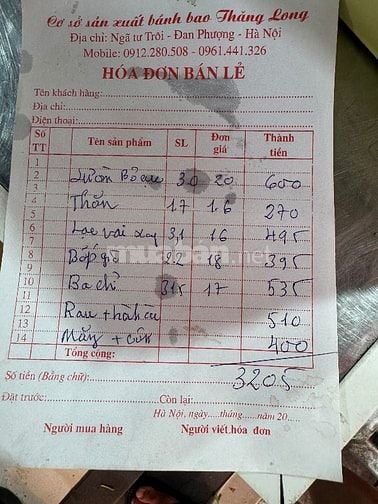 Cơ sở sản xuất bánh bao Thăng Long
Địa chỉ: Ngã tư Trôi - Đan Phượng - Hà Nội
Mobile: 0912.280.508 - 0961.441.326
HÓA ĐƠN BÁN LẺ
Tên khách hàng:
Địa chỉ:
Điện thoại:
Số TT Tên sản phẩm SL Đơn giá Thành tiền
1
2 30 20 600
4 Thăn 17 16 270
6 31 16 495
8 22 18 395
10 Ba chỉ 315 17 535
12 Rau + hành củ 510
13
14 400
Tổng cộng: 3205
Số tiền (Bằng chữ):
Đặt trước: Còn lại:
Hà Nội, ngày.....tháng.....năm 20....
Người mua hàng Người viết hóa đơn
muaban.net